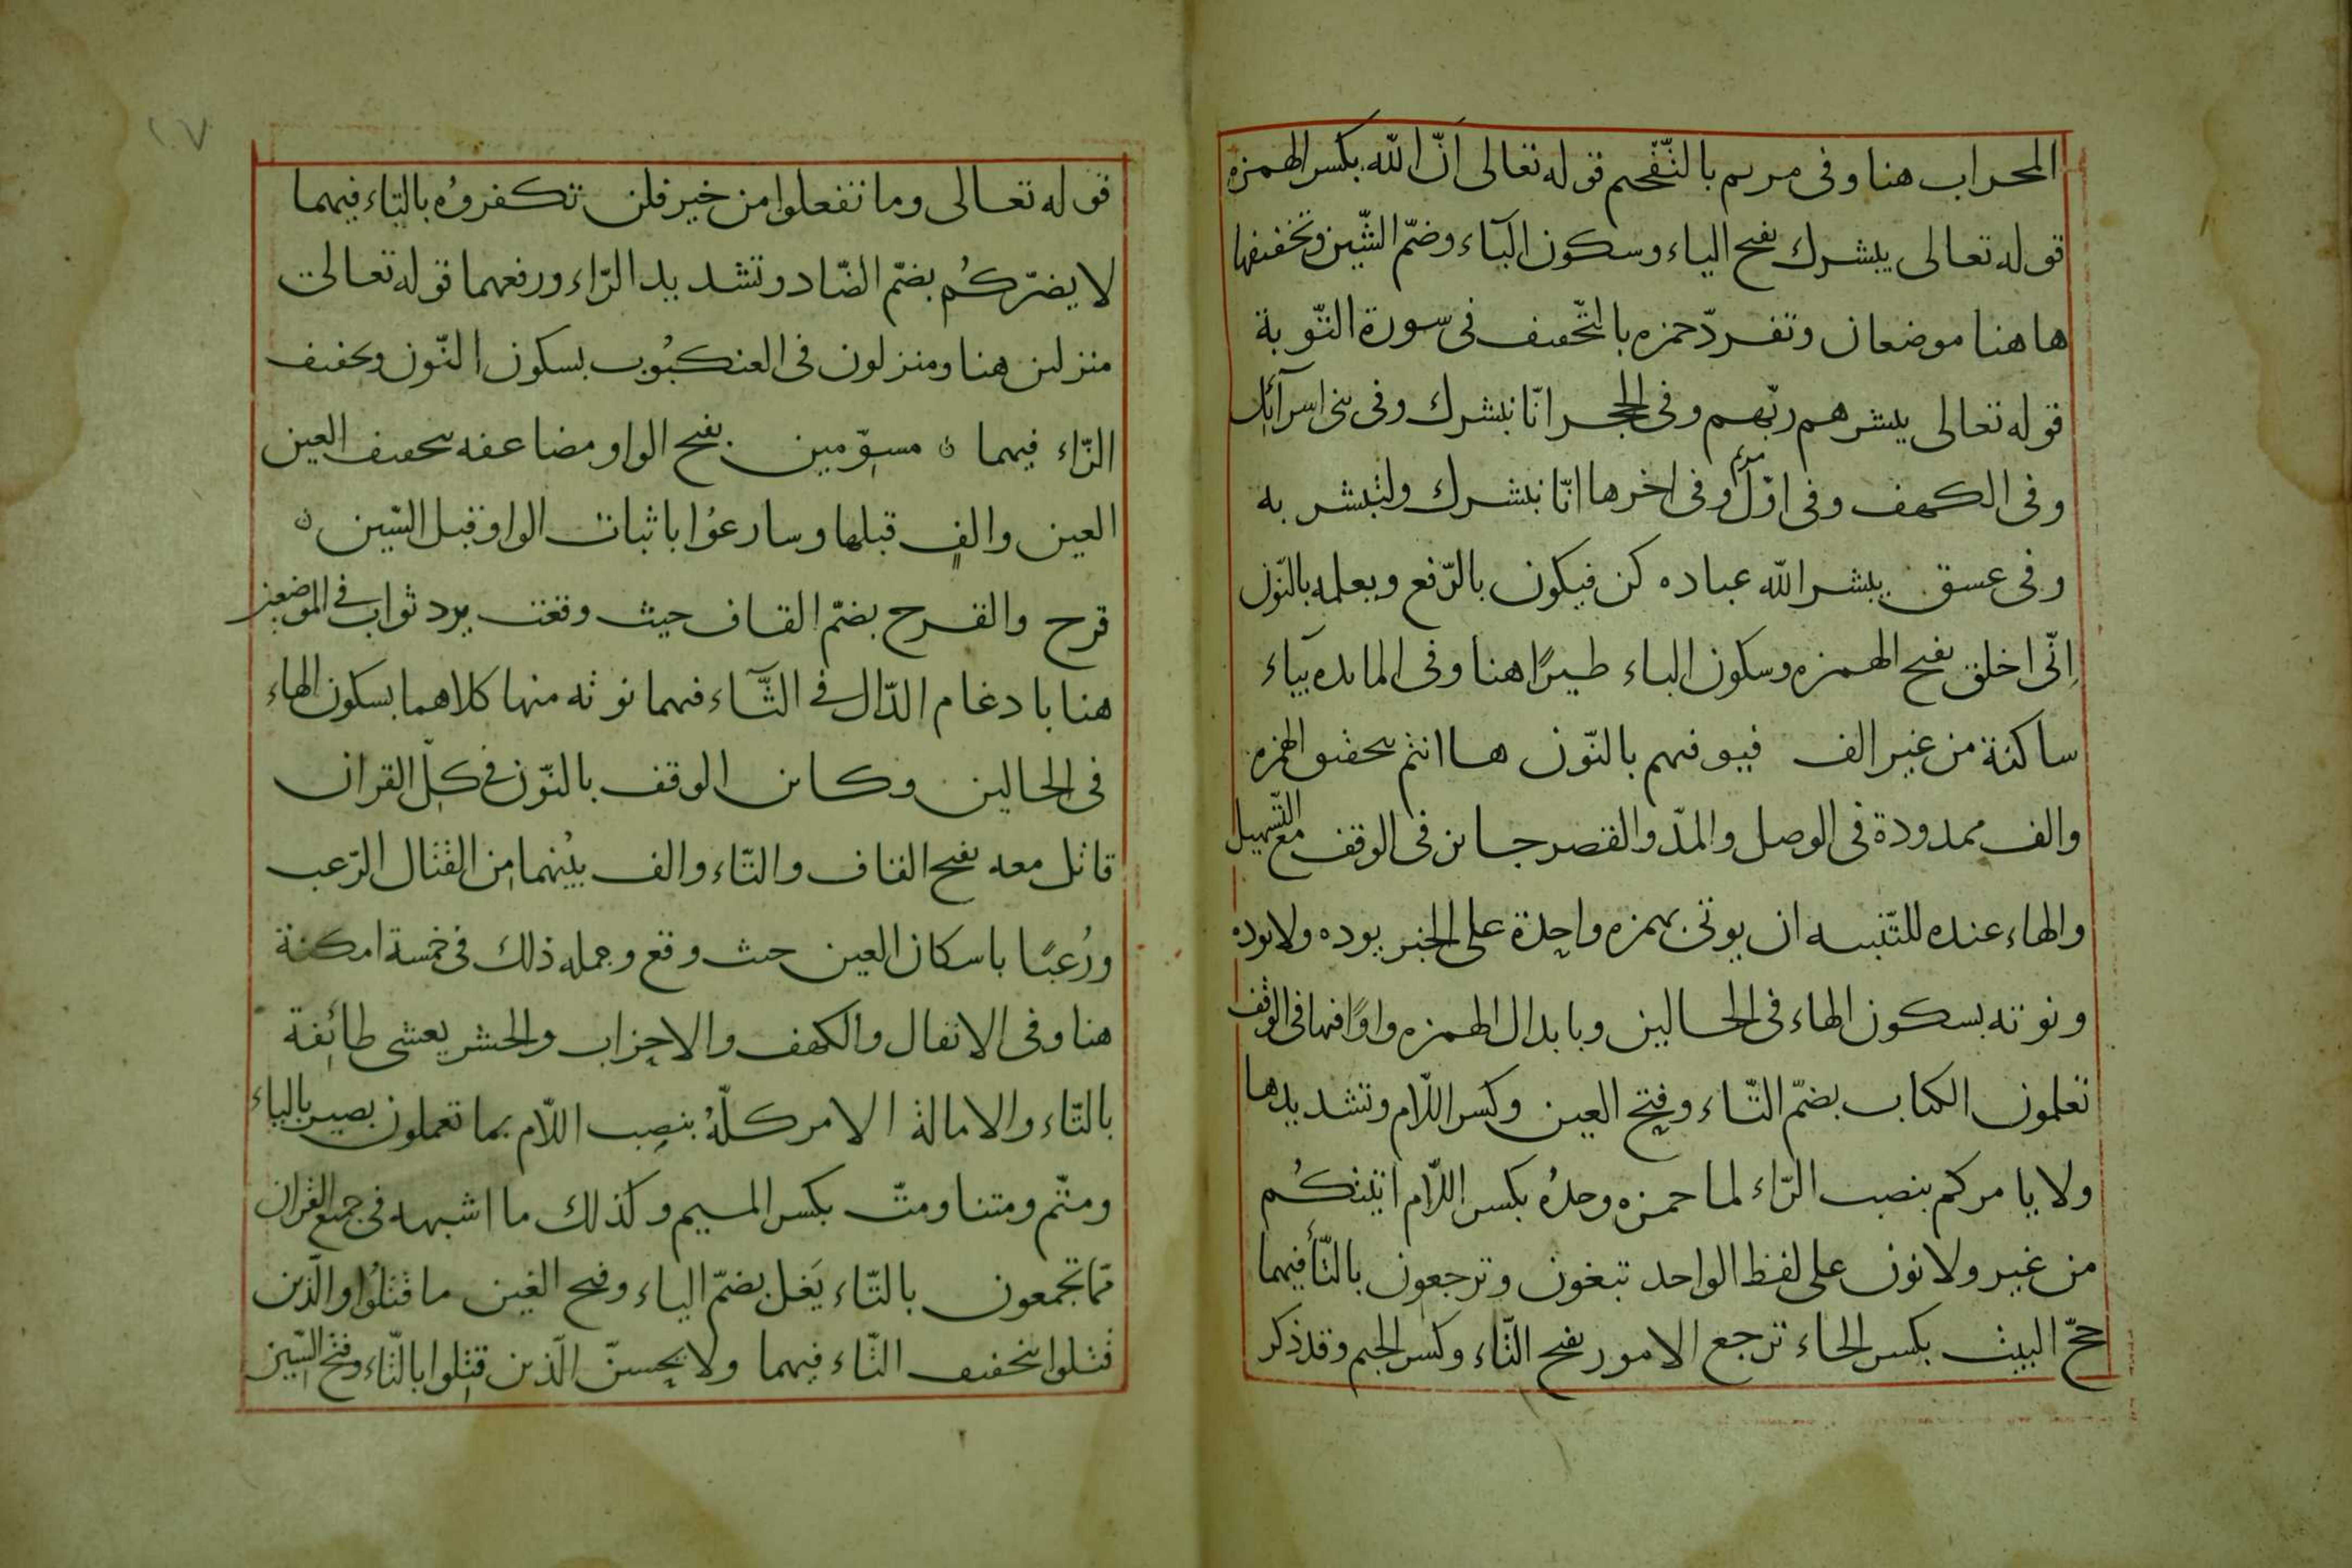 المحراب هنا وفى مريم بالتّفخيم قوله تعالى انّ الله بكسر الهمزه
قوله تعالى يبشرك بفتح الياء وسكون البآء وضمّ الشّين وتخفيفها
هاهنا موضعان وتفرّد حمزه بالتّخفيف فى سورة التّوبة
قوله تعالى يبشرهم ربّهم وفى الحجر انّا نبشرك وفى بنى اسرآئل
وفى الكهف وفى اوّل مريم وفى اخرها انّا نبشرك ولتبشر به
وفى عسق يبشر الله عباده كن فيكون بالرّفع ويعلمه بالنّون
اِنّى اخلق بفتح الهمزه وسكون الياء طيرًا هنا وفى المائده بيآء
ساكنة من غير الف فيوفيهم بالنّون هاانتم بتحقيق الهمزه
والف ممدودة فى الوصل والمدّ والقصر جايز فى الوقف مع التّسهيل
والهاء عنده للتّنبيه ان يوتى بهمزه واحدة على الخبر يوده ولايوده
ونوته بسكون الهاء فى الحالين وبابدال الهمزه واوًا فيها فى الوقف
تعلمون الكتاب بضمّ التّاء وفتح العين وكسر اللّام وتشديدها
ولا يامركم بنصب الرّاء لما حمزه وحدُه بكسر اللّام اتيتكُم
من غير ولا نون على لفظ الواحد تبغون وترجعون بالتّأ فيهما
حجّ البيت بكسر الحاء ترجع الامور بفتح التّاء وكسر الجيم وقد ذكر
قوله تعالى وما تفعلوا من خير فلن تكفروُه بالتاء فيهما
لا يضرّكُم بضمّ الضّاد وتشديد الرّاء ورفعهما قوله تعالى
منزلين هنا ومنزلون فى العنكبُوت بسكون النّون وتخفيف
الزّاء فيهما ن مسوّمين بفتح الواو مضاعفه بتخفيف العين
العين والفٍ قبلها وسارعوُا باثبات الواو قبل السّين ن
قرح والقرح بضمّ القاف حيث وقعت يرد ثواب فى الموضعين
هنا بادغام الدّال فى الثّآء فيهما نوته منها كلاهما بسكون الهاء
فى الحالين وكاين الوقف بالنّون فى كلّ القران
قاتل معه بفتح القاف والتّاء والف بيُنهما مِن القتال الرّعب
ورُعبًا باسكان العين حيث وقع وجمله ذلك فى خمسة امكنة
هنا وفى الانفال والكهف والاحزاب والحشر يغشى طائِفة
بالتّاء والامالة الامر كلّهُ بنصِب اللّام بما تعملون بصير بالياء
ومتّم ومتنا ومتّ بكسر الميم وكذلك ما اشبهه فى جميع القران
ممّا تجمعون بالتّاء يَغل بضمّ الياء وفتح الغين ما قتلُوا والّذين
قتلوا بتخفيف التّاء فيهما ولا يحسبنّ الّذين قتِلوا بالتّاء وفتح السّين